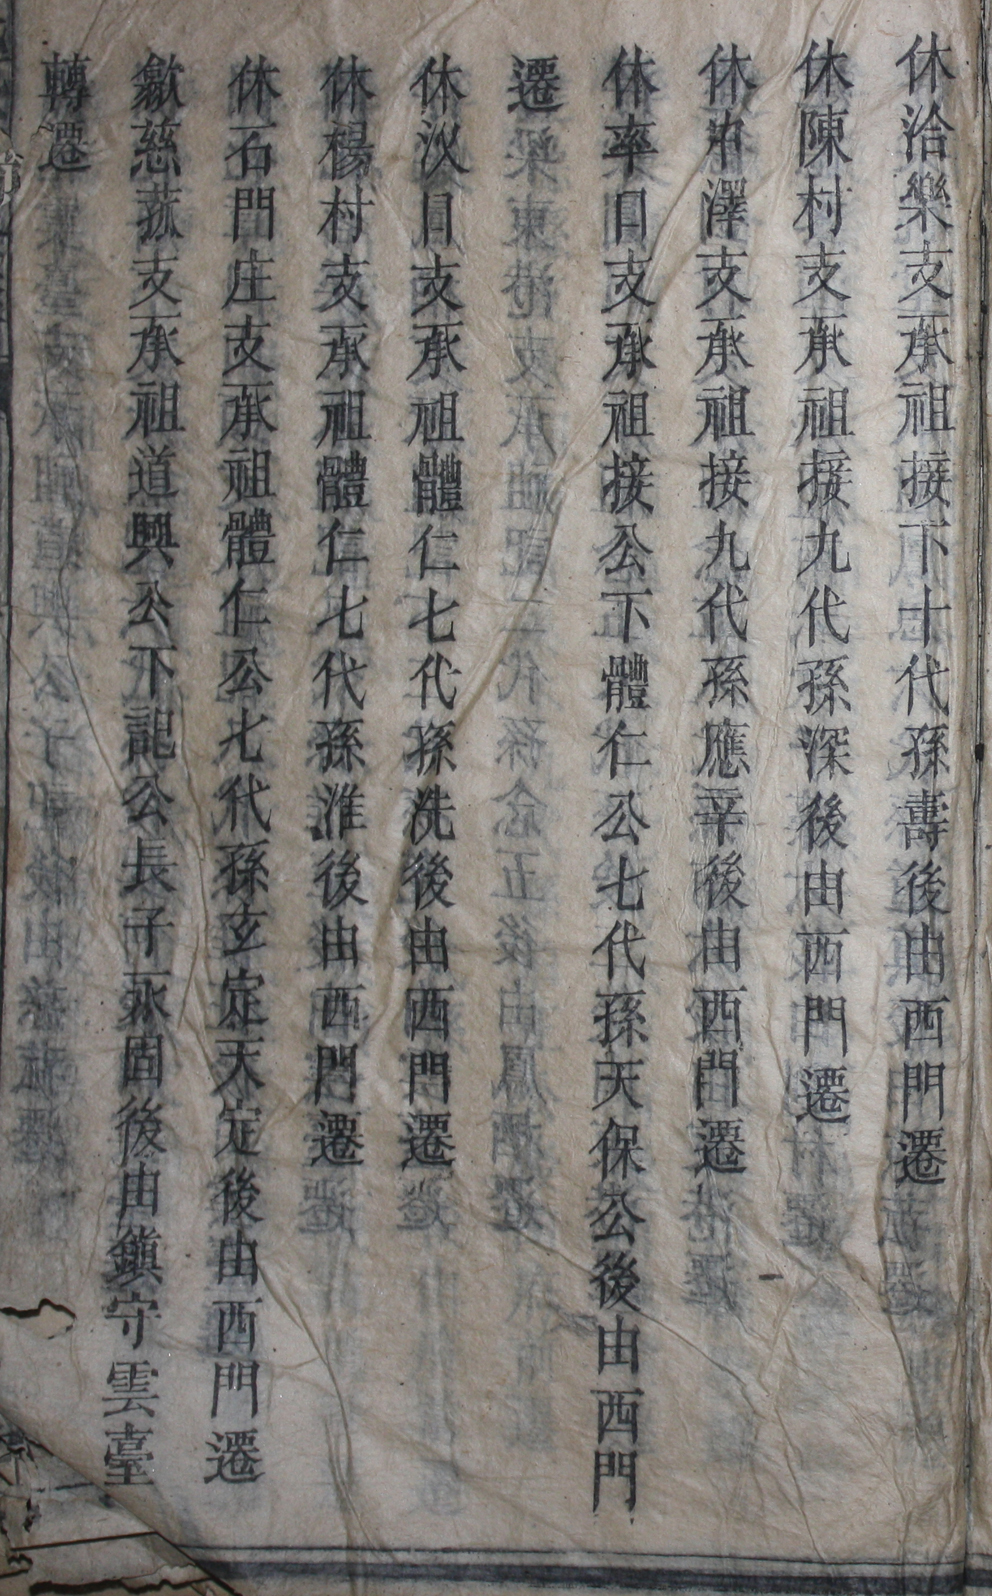 休洽樂支承祖接下十代孫壽後由西門遷
休陳村支承祖接九代孫深後由西門遷
休中澤支承祖接九代孫應辛後由西門遷
休率口支承祖接公下體仁公七代孫天保公後由西門
遷
休汊口支承祖體仁七代孫洗後由西門遷
休楊村支承祖體仁七代孫淮後由西門遷
休石門庄支承祖體仁公七代孫玄定天定後由西門遷
歙慈菰支承祖道興公下記公長子永固後由鎮守雲臺
轉遷